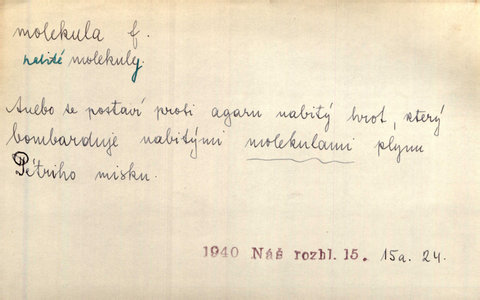 molekula f.
nabité molekuly.
Anebo se postaví proti agaru nabitý hrot, který
bombarduje nabitými molekulami plynu
Pétriho misku.
1940 Náš rozhl. 15. 15a. 24.